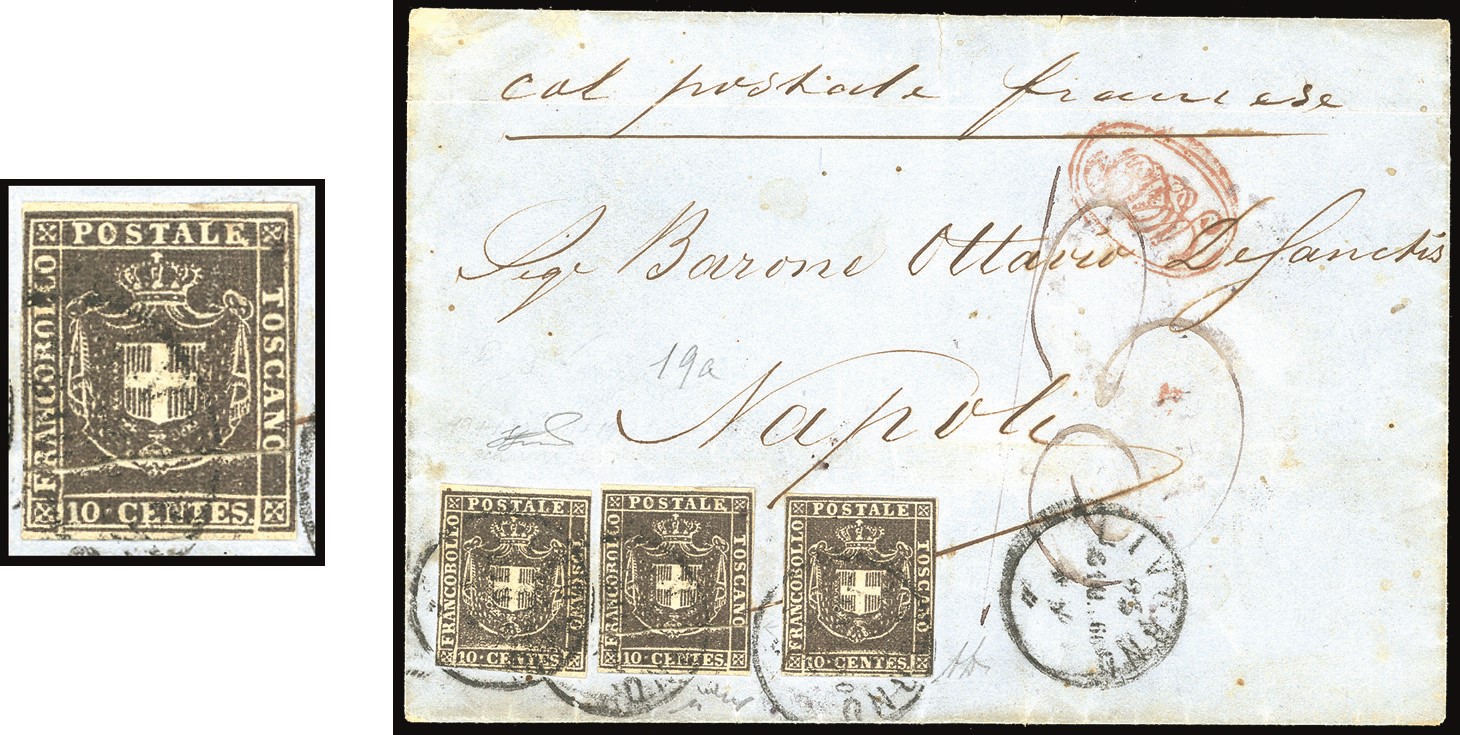 POSTALE
FRANCOBOLLO
TOSCANO
10 CENTES.
col postale francese
Sigr Barone Ottavio DeSanctis
19a
Napoli
POSTALE
FRANCOBOLLO
TOSCANO
10·CENTES.
POSTALE
FRANCOBOLLO
TOSCANO
10·CENTES.
POSTALE
FRANCOBOLLO
TOSCANO
10·CENTES.
LIVORNO